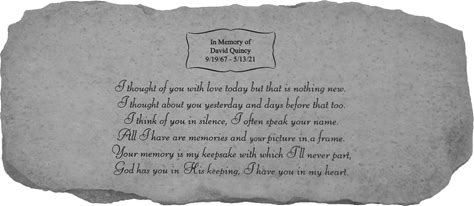 In Memory of
David Quincy
9/19/67 - 5/13/21
I thought of you with love today but that is nothing new.
I thought about you yesterday and days before that too.
I think of you in silence, I often speak your name.
All I have are memories and your picture in a frame.
Your memory is my keepsake with which I'll never part,
God has you in His keeping, I have you in my heart.